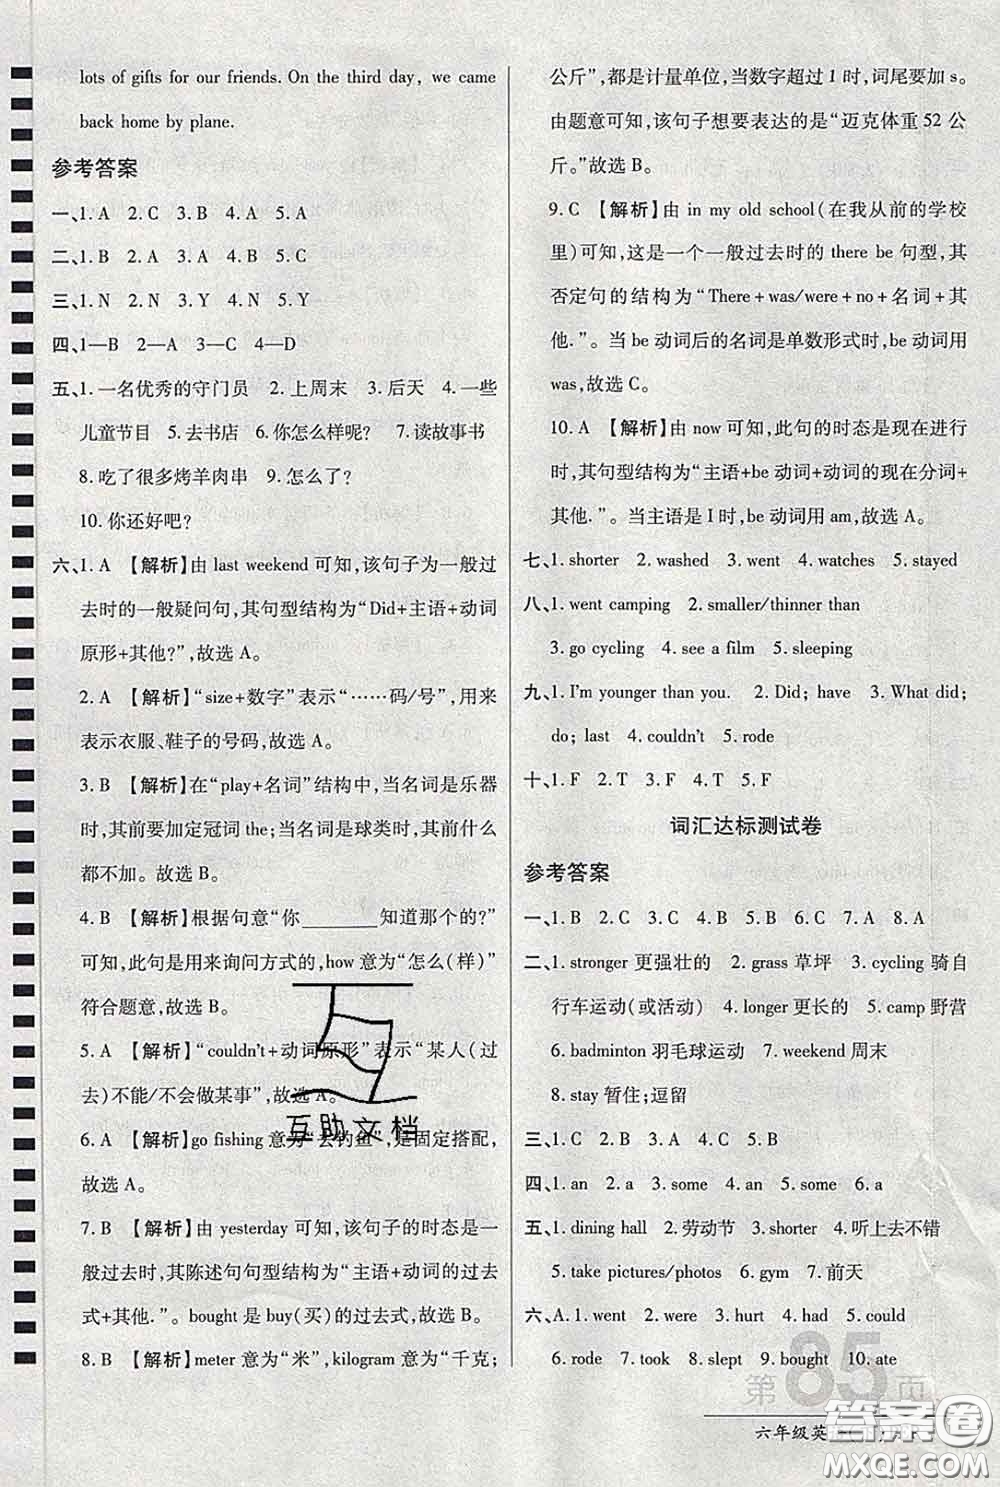 lots of gifts for our friends. On the third day, we came
back home by plane.
参考答案
一、1. A 2. C 3. B 4. A 5. A
二、1. B 2. A 3. A 4. B 5. C
三、1. N 2. N 3. Y 4. N 5. Y
四、1—B 2—A 3—C 4—D
五、1. 一名优秀的守门员 2. 上周末 3. 后天 4. 一些
儿童节目 5. 去书店 6. 你怎么样呢? 7. 读故事书
8. 吃了很多烤羊肉串 9. 怎么了?
10. 你还好吧?
六、1. A 【解析】由 last weekend 可知,该句子为一般过
去时的一般疑问句,其句型结构为“Did+主语+动词
原形+其他?”,故选 A。
2. A 【解析】“size+数字”表示“……码/号”,用来
表示衣服、鞋子的号码,故选 A。
3. B 【解析】在“play+名词”结构中,当名词是乐器
时,其前要加定冠词 the;当名词是球类时,其前什么
都不加。故选 B。
4. B 【解析】根据句意“你________知道那个的?”
可知,此句是用来询问方式的,how 意为“怎么(样)”
符合题意,故选 B。
5. A 【解析】“couldn't+动词原形”表示“某人(过
去)不能/不会做某事”,故选 A。
6. A 【解析】go fishing 意为“去钓鱼”,是固定搭配,
故选 A。
7. B 【解析】由 yesterday 可知,该句子的时态是一
般过去时,其陈述句句型结构为“主语+动词的过去
式+其他.”。bought 是 buy(买)的过去式,故选 B。
8. B 【解析】meter 意为“米”,kilogram 意为“千克;
公斤”,都是计量单位,当数字超过 1 时,词尾要加 s。
由题意可知,该句子想要表达的是“迈克体重 52 公
斤。”故选 B。
9. C 【解析】由 in my old school(在我从前的学校
里)可知,这是一个一般过去时的 there be 句型,其
否定句的结构为“There+was/were+no+名词+其
他.”。当 be 动词后的名词是单数形式时,be 动词用
was,故选 C。
10. A 【解析】由 now 可知,此句的时态是现在进行
时,其句型结构为“主语+be 动词+动词的现在分词+
其他.”。当主语是 I 时,be 动词用 am,故选 A。
七、1. shorter 2. washed 3. went 4. watches 5. stayed
八、1. went camping 2. smaller/thinner than
3. go cycling 4. see a film 5. sleeping
九、1. I'm younger than you. 2. Did; have 3. What did;
do; last 4. couldn't 5. rode
十、1. F 2. T 3. F 4. T 5. F
词汇达标测试卷
参考答案
一、1. B 2. C 3. C 4. B 5. C 6. B 7. A 8. A
二、1. stronger 更强壮的 2. grass 草坪 3. cycling 骑自
行车运动(或活动) 4. longer 更长的 5. camp 野营
6. badminton 羽毛球运动 7. weekend 周末
8. stay 暂住;逗留
三、1. C 2. B 3. A 4. C 5. B
四、1. an 2. a 3. a 4. an 5. a 6. a
五、1. dining hall 2. 劳动节 3. shorter 4. 听上去不错
5. take pictures/photos 6. gym 7. 前天
六、A. 1. went 2. were 3. hurt 4. had 5. could
6. rode 7. took 8. slept 9. bought 10. ate
第85页
六年级英
互助文档
答案圈
MXQE.COM